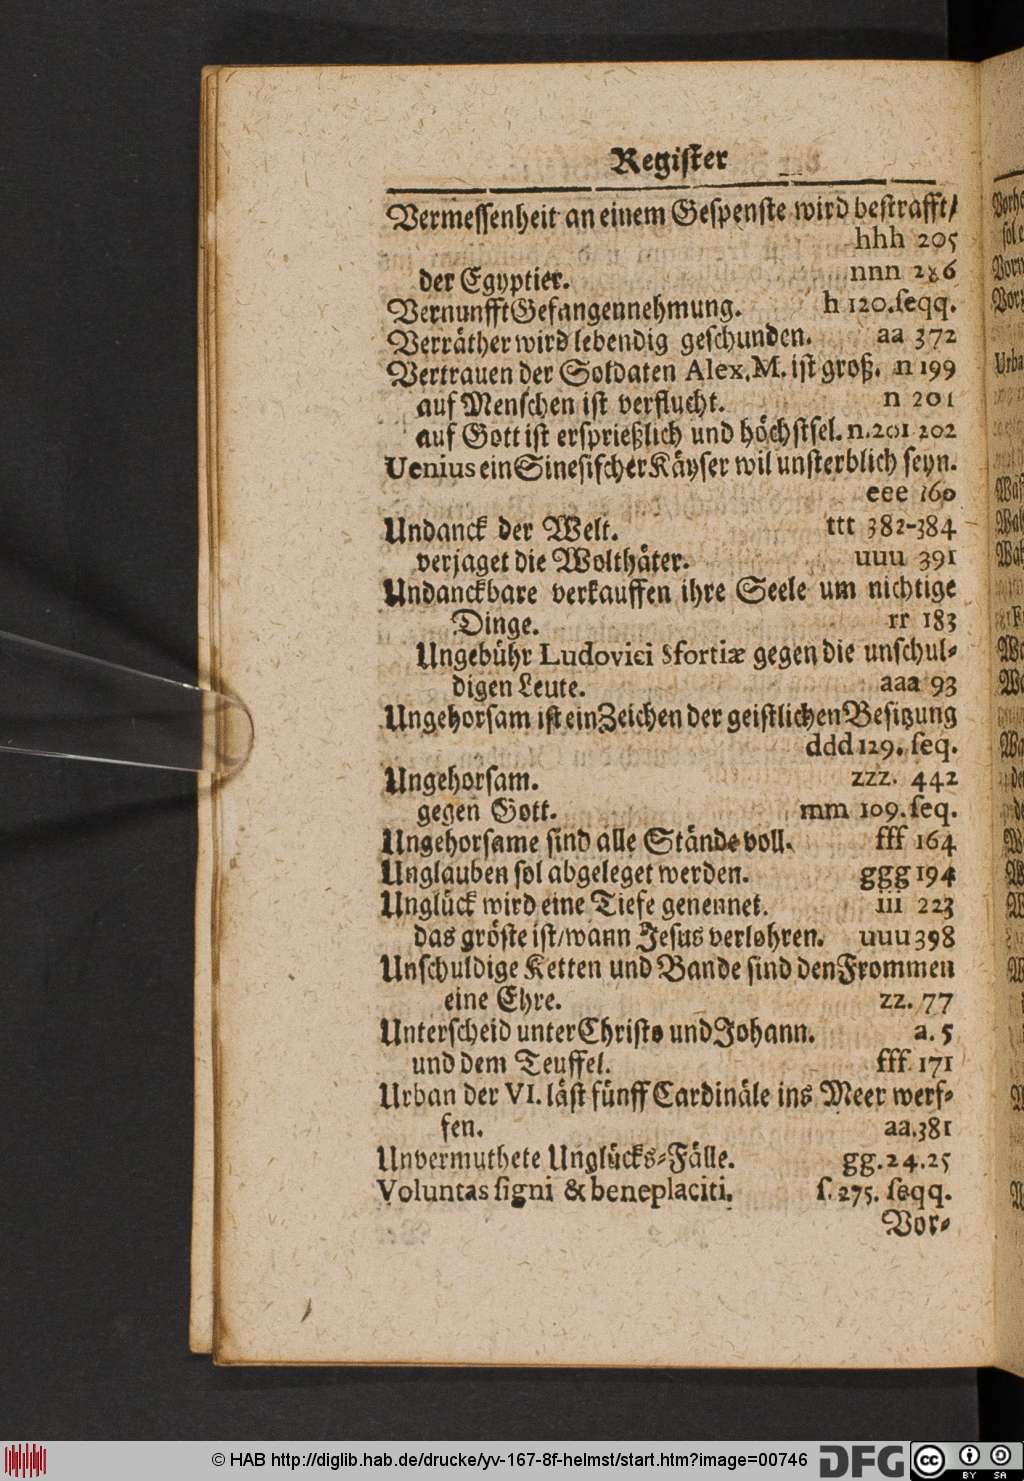 Register
Vermessenheit an einem Gespenste wird bestrafft/
hhh 205
der Egyptier. nnn 286
Vernunfft Gefangennehmung. h 120. seqq.
Verräther wird lebendig geschunden. aa 372
Vertrauen der Soldaten Alex. M. ist groß. n 199
auf Menschen ist verflucht. n 201
auf Gott ist ersprießlich und höchstsel. n. 201 202
Uenius ein Sinesischer Käyser wil unsterblich seyn.
eee 160
Undanck der Welt. ttt 382-384
verjaget die Wolthäter. uuu 391
Undanckbare verkauffen ihre Seele um nichtige
Dinge. rr 183
Ungebühr Ludovici Sfortiæ gegen die unschul-
digen Leute. aaa 93
Ungehorsam ist ein Zeichen der geistlichen Besitzung
ddd 129. seq.
Ungehorsam. zzz. 442
gegen Gott. mm 109. seq.
Ungehorsame sind alle Stände voll. fff 164
Unglauben sol abgeleget werden. ggg 194
Unglück wird eine Tiefe genennet. iii 223
das gröste ist/ wann Jesus verlohren. uuu 398
Unschuldige Ketten und Bande sind den Frommen
eine Ehre. zz. 77
Unterscheid unter Christo und Johann. a. 5
und dem Teuffel. fff 171
Urban der VI. läst fünff Cardinäle ins Meer werf-
fen. aa. 381
Unvermuthete Unglücks-Fälle. gg. 24. 25
Voluntas signi & beneplaciti. s. 275. seqq.
Vor-
© HAB http://diglib.hab.de/drucke/yv-167-8f-helmst/start.htm?image=00746
DFG
cc
BY SA